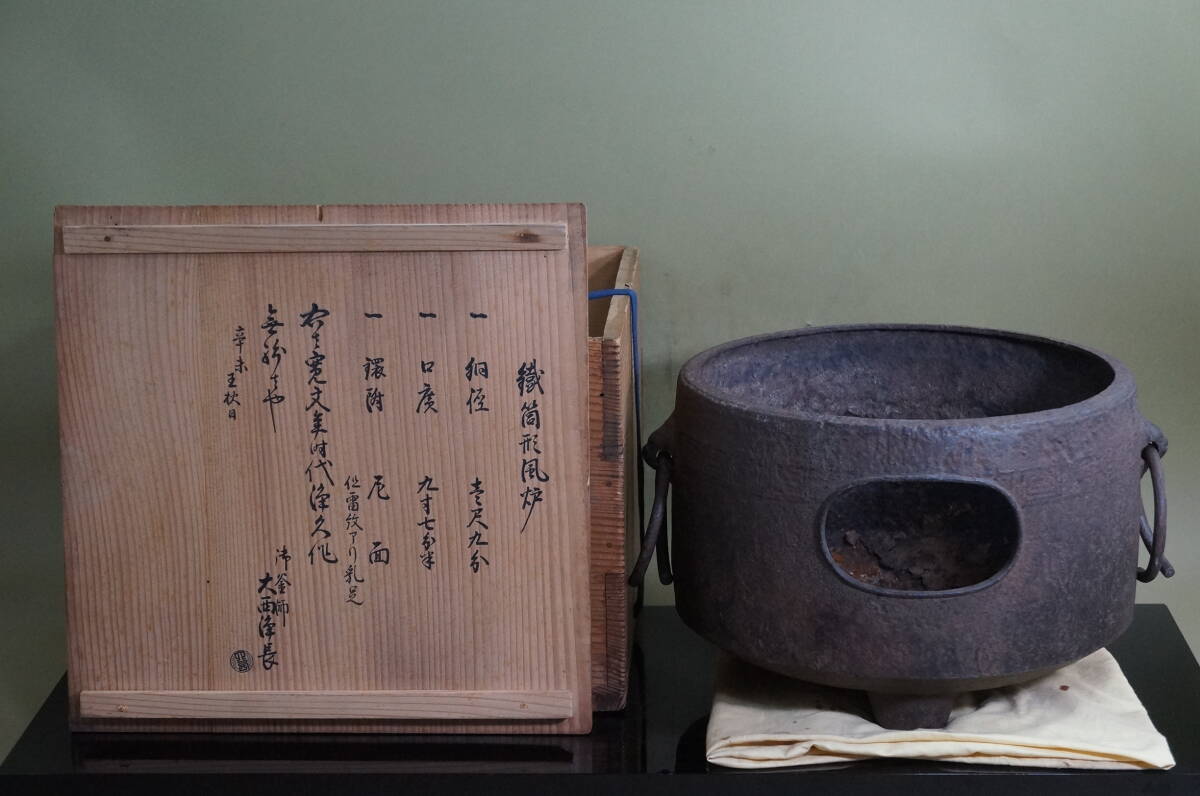 鐵筒形風炉
一 胴径 壱尺九分
一 口廣 九寸七分半
一 鐶附 鬼面
但雷紋アリ乳足
右者寛文年時代浄久作
無紛者也
辛未 王秋日
御釜師
大西浄長